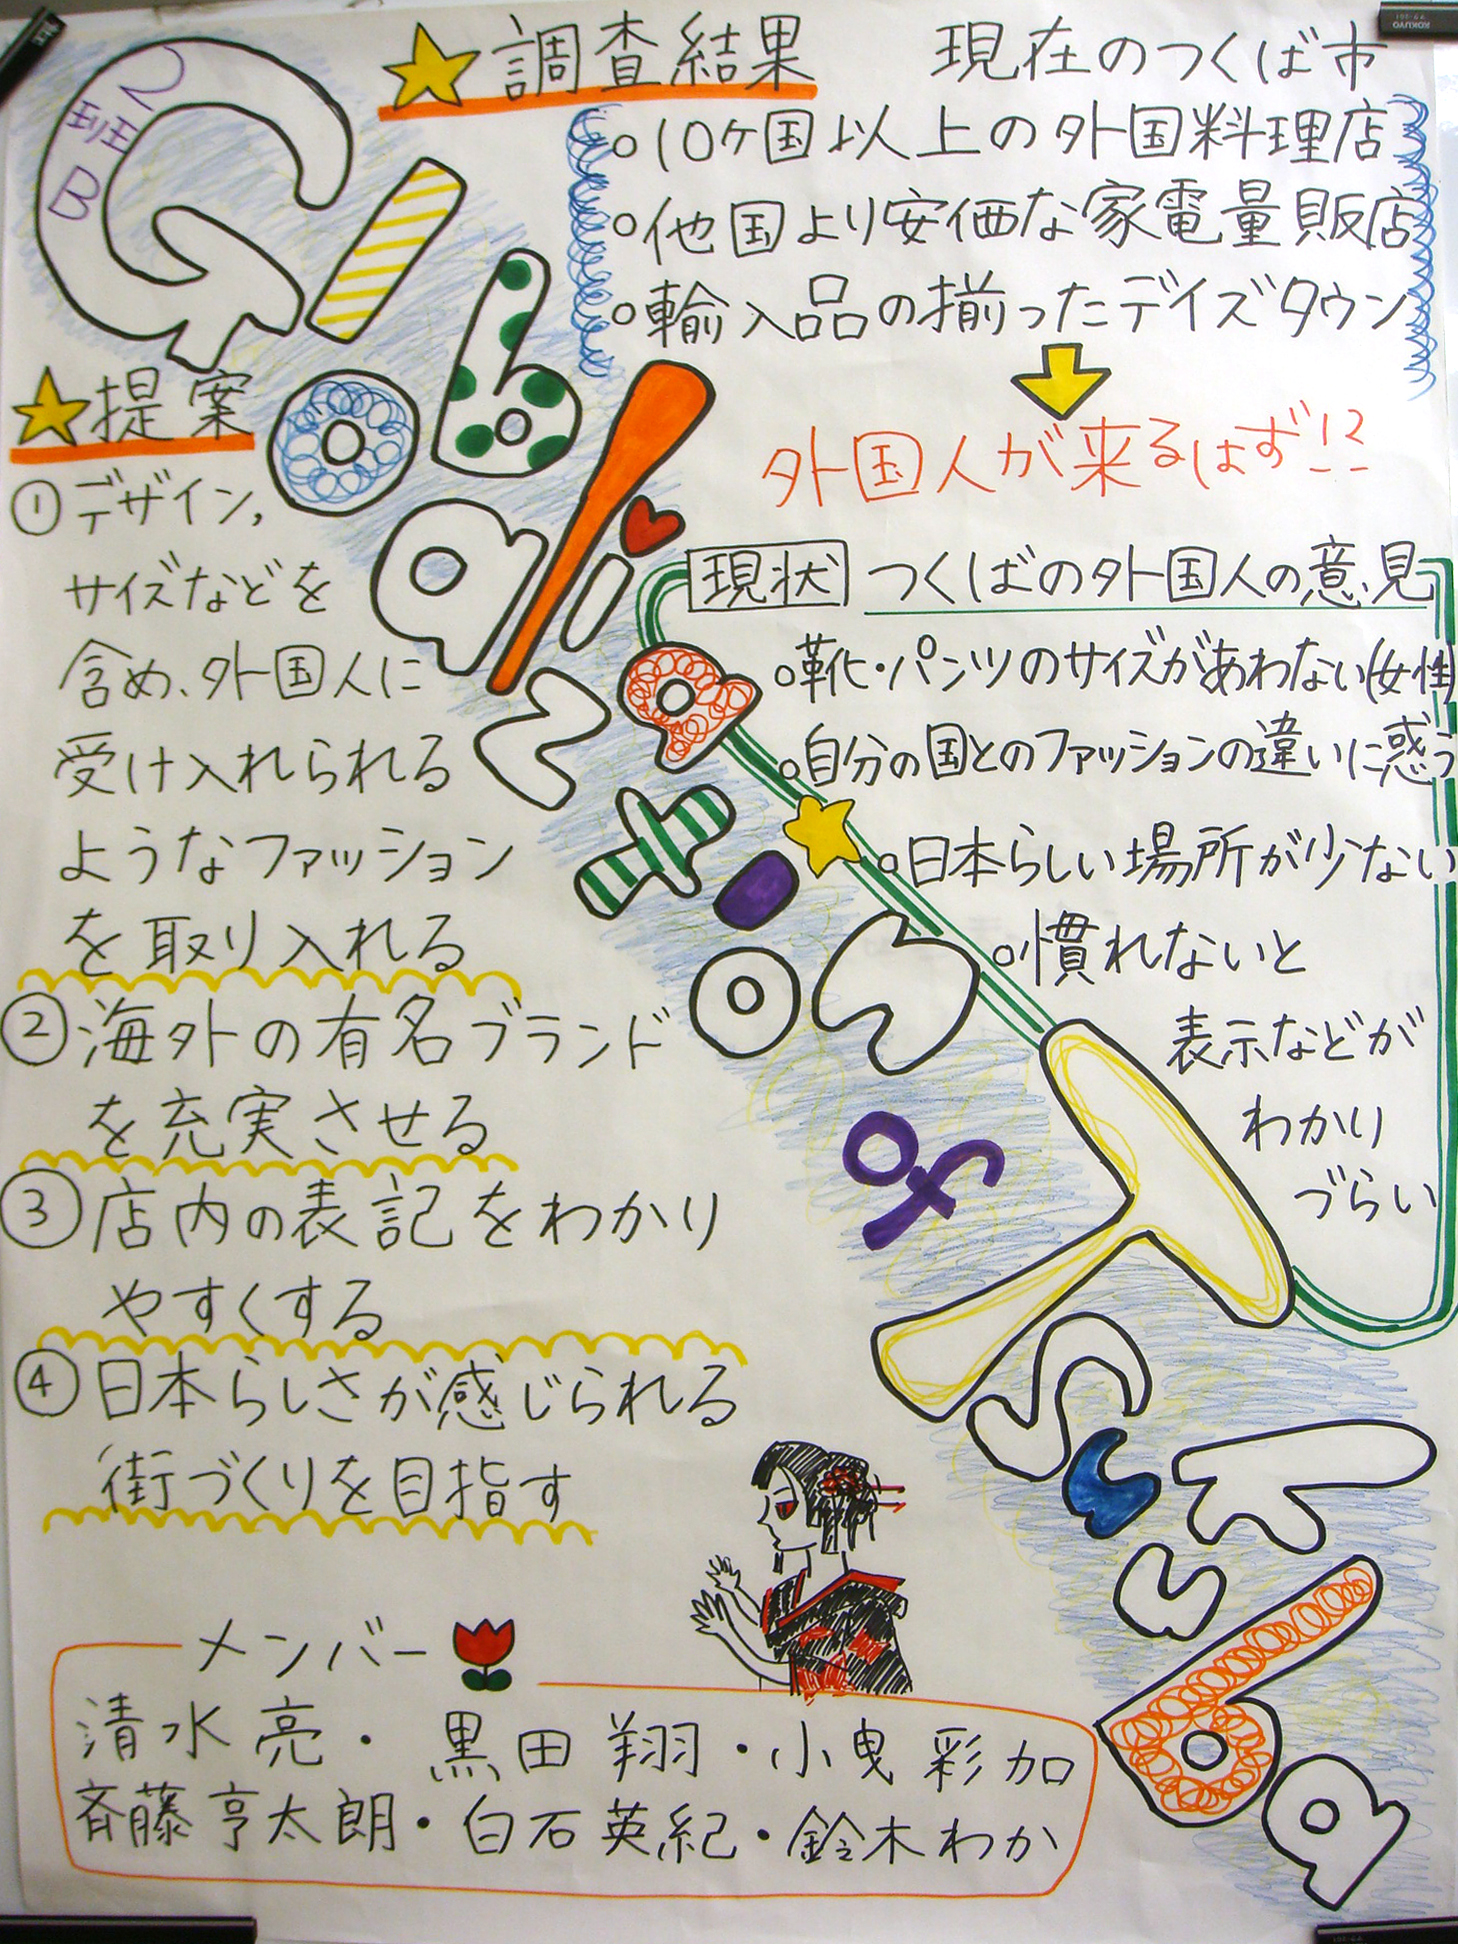 2班B
Globalization of Tsukuba
★調査結果 現在のつくば市
○10ヶ国以上の外国料理店
○他国より安価な家電量販店
○輸入品の揃ったデイズタウン
外国人が来るはず!?
現状 つくばの外国人の意見
○靴・パンツのサイズがあわない(女性)
○自分の国とのファッションの違いに惑う
○日本らしい場所が少ない
○慣れないと
表示などが
わかり
づらい
★提案
①デザイン,
サイズなどを
含め、外国人に
受け入れられる
ようなファッション
を取り入れる
②海外の有名ブランド
を充実させる
③店内の表記をわかり
やすくする
④日本らしさが感じられる
街づくりを目指す
メンバー
清水亮・黒田翔・小曳彩加
斉藤亨太朗・白石英紀・鈴木わか
KOKUYO